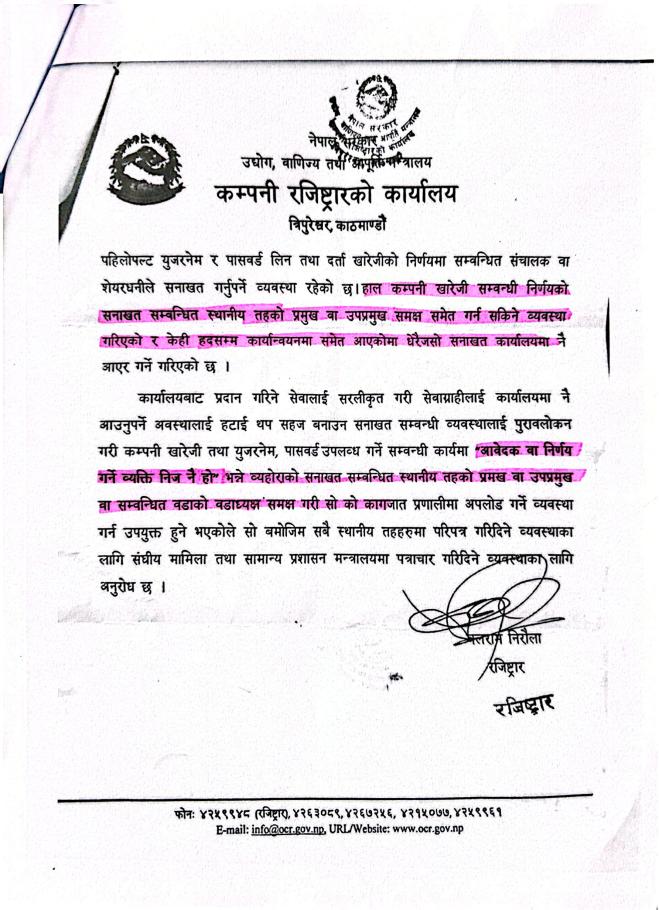 नेपाल सरकार
उद्योग, वाणिज्य तथा आपूर्ति मन्त्रालय
कम्पनी रजिष्ट्रारको कार्यालय
त्रिपुरेश्वर, काठमाण्डौं
पहिलोपल्ट युजरनेम र पासवर्ड लिन तथा दर्ता खारेजीको निर्णयमा सम्बन्धित संचालक वा
शेयरधनीले सनाखत गर्नुपर्ने व्यवस्था रहेको छ। हाल कम्पनी खारेजी सम्बन्धी निर्णयको
सनाखत सम्बन्धित स्थानीय तहको प्रमुख वा उपप्रमुख समक्ष समेत गर्न सकिने व्यवस्था
गरिएको र केही हदसम्म कार्यान्वयनमा समेत आएकोमा धेरैजसो सनाखत कार्यालयमा नै
आएर गर्ने गरिएको छ ।
कार्यालयबाट प्रदान गरिने सेवालाई सरलीकृत गरी सेवाग्राहीलाई कार्यालयमा नै
आउनुपर्ने अवस्थालाई हटाई थप सहज बनाउन सनाखत सम्बन्धी व्यवस्थालाई पुरावलोकन
गरी कम्पनी खारेजी तथा युजरनेम, पासवर्ड उपलब्ध गर्ने सम्बन्धी कार्यमा "आवेदक वा निर्णय
गर्ने व्यक्ति निज नै हो" भन्ने व्यहोराको सनाखत सम्बन्धित स्थानीय तहको प्रमख वा उपप्रमुख
वा सम्बन्धित वडाको वडाध्यक्ष समक्ष गरी सो को कागजात प्रणालीमा अपलोड गर्ने व्यवस्था
गर्न उपयुक्त हुने भएकोले सो बमोजिम सबै स्थानीय तहहरुमा परिपत्र गरिदिने व्यवस्थाका
लागि संघीय मामिला तथा सामान्य प्रशासन मन्त्रालयमा पत्राचार गरिदिने व्यवस्थाका लागि
अनुरोध छ ।
निरौला
रजिष्ट्रार
रजिष्ट्रार
फोनः ४२५९९४८ (रजिष्ट्रार), ४२६३०८९, ४२६७२५६, ४२१५०७७, ४२५९९६१
E-mail: info@ocr.gov.np, URL/Website: www.ocr.gov.np